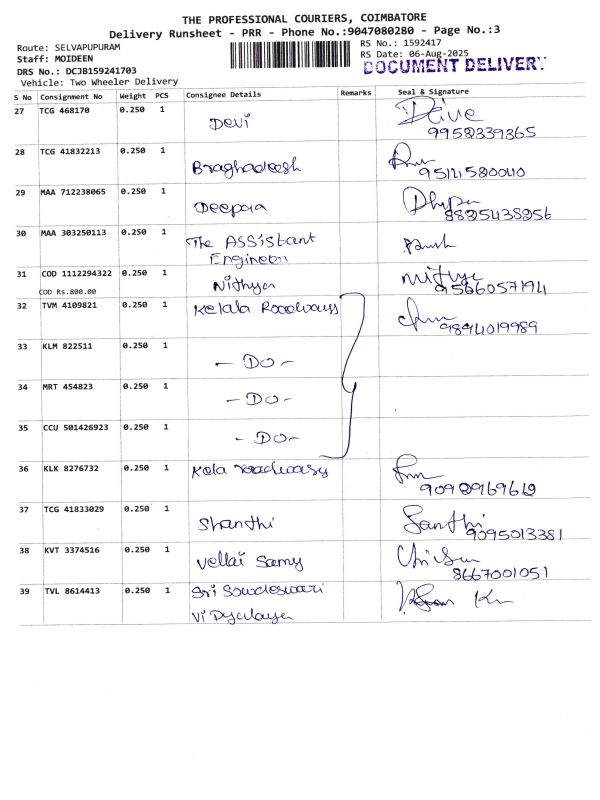 THE PROFESSIONAL COURIERS, COIMBATORE
Delivery Runsheet - PRR - Phone No.:9047080280 - Page No.:3
Route: SELVAPUPURAM
Staff: MOIDEEN
DRS No.: DCJB159241703
Vehicle: Two Wheeler Delivery
RS No.: 1592417
RS Date: 06-Aug-2025
DOCUMENT DELIVERY
S No Consignment No Weight PCS Consignee Details Remarks Seal & Signature
27 TCG 468170 0.250 1 Devi
9952339365
28 TCG 41832213 0.250 1 Braghadeesh
95121580040
29 MAA 712238065 0.250 1 Deepna
8825438256
30 MAA 303250113 0.250 1 The ASSistant
Engineer
31 COD 1112294322 0.250 1 Nithya Nithya
COD Rs.800.00 9566057194
32 TVM 4109821 0.250 1 Kerala Roadways
9894019989
33 KLM 822511 0.250 1 - DO -
34 MRT 454823 0.250 1 - DO -
35 CCU 501426923 0.250 1 - DO -
36 KLK 8276732 0.250 1 Kela roadways
9092969619
37 TCG 41833029 0.250 1 Shanthi Santhi
9095013381
38 KVT 3374516 0.250 1 Vellai Samy
8667001051
39 TVL 8614413 0.250 1 Sri Sowdeswari
Vidyalaya